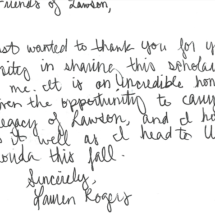 riends of Lawson,
st wanted to thank you for y
sity in sharing this schola
me. It is an incredible hon
ven the opportunity to carry
legacy of Lawson, and I ho
it well as I head to U
orida this fall.
Sincerely,
Lauren Rogers